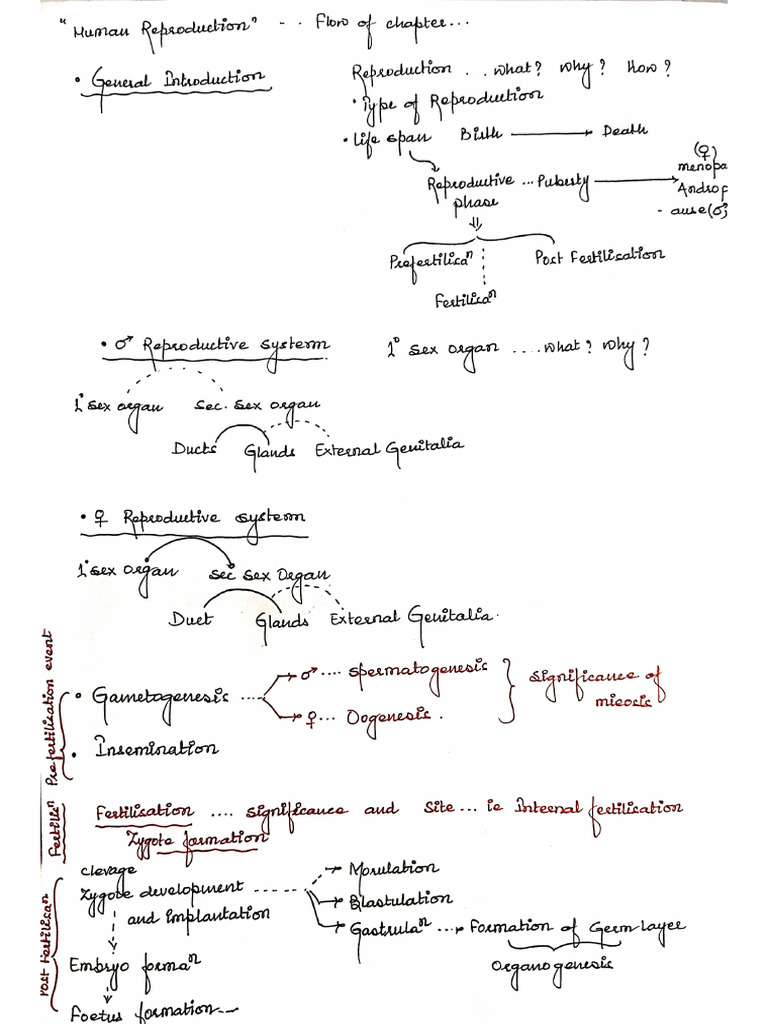 "Human Reproduction" - .. Flow of chapter...
• General Introduction
Reproduction .. what? why? How?
• Type of Reproduction
• Life span Birth → Death
Reproductive phase ... Puberty →
(♀) menopa
Androp
- ause (♂)
⇓
Prefertilicaⁿ Post Fertilisation
Fertilicaⁿ
• ♂ Reproductive systerm 1° sex organ .... what? why?
1° sex organ sec. sex organ
Ducts Glands External Genitalia
• ♀ Reproductive systerm
1° sex organ sec sex Organ
Duct Glands External Genitalia.
Prefertilisation event
• Gametogenesis .... → ♂ .... spermatogenesis
→ ♀ ... Oogenesis.
significance of
mieosis
• Insemination
Fertilisⁿ
Fertilisation .... significance and site... ie Internal fertilication
Zygote formation
Post Fertilican
clevage
Zygote development
and implantation
→ Morulation
→ Blastulation
→ Gastrulaⁿ ...→ Formation of Germ layer
Organogenesis
Embryo formaⁿ
Foetus formation...